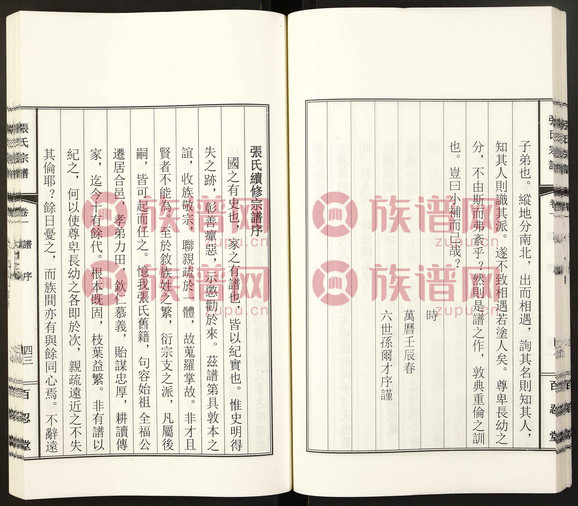 子弟也。縱地分南北，出而相遇，詢其名則知其人，
知其人則識其派。遂不致相遇若塗人矣。尊卑長幼之
分，不由斯而弗紊乎？然則是譜之作，敦典重倫之訓
也。豈曰小補而已哉？
時
萬曆壬辰春
六世孫爾才序謹
張氏續修宗譜序
國之有史也，家之有譜也，皆以紀實也。惟史明得
失之跡，彰善癉惡，示懲勸於來。茲譜第具敦本之
誼，收族敬宗、聯親疏於一體，故蒐羅掌故。非才且
賢者不能為，至於敘族姓之繁，衍宗支之派，凡屬後
嗣，皆可起而任之。憶我張氏舊籍，句容始祖全福公
遷居合邑，孝弟力田，欽仁慕義，貽謀忠厚，耕讀傳
家，迄今十有餘代。根本既固，枝葉益繁。非有譜以
紀之，何以使尊卑長幼之各即於次，親疏遠近之不失
其倫耶？餘日憂之，而族間亦有與餘同心焉。不辭遠
張氏宗譜
卷一
譜序
四三
百忍堂
張氏宗譜
卷一
百忍堂
族谱网
zupu.cn
族谱网
zupu.cn
族谱网
zupu.cn
族谱网
zupu.cn